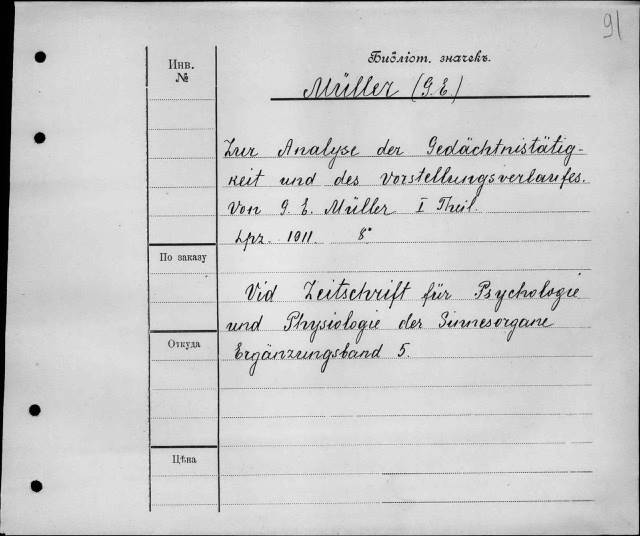 91
Инв.
№
Библіот. значекъ.
Müller (G. E.)
Zur Analyse der Gedächtnistätig-
keit und des Vorstellungsverlaufes.
Von G. E. Müller I Theil.
Lpz. 1911. 8°
По заказу
Vid Zeitschrift für Psychologie
und Physiologie der Sinnesorgane
Откуда
Ergänzungsband 5.
Цѣна